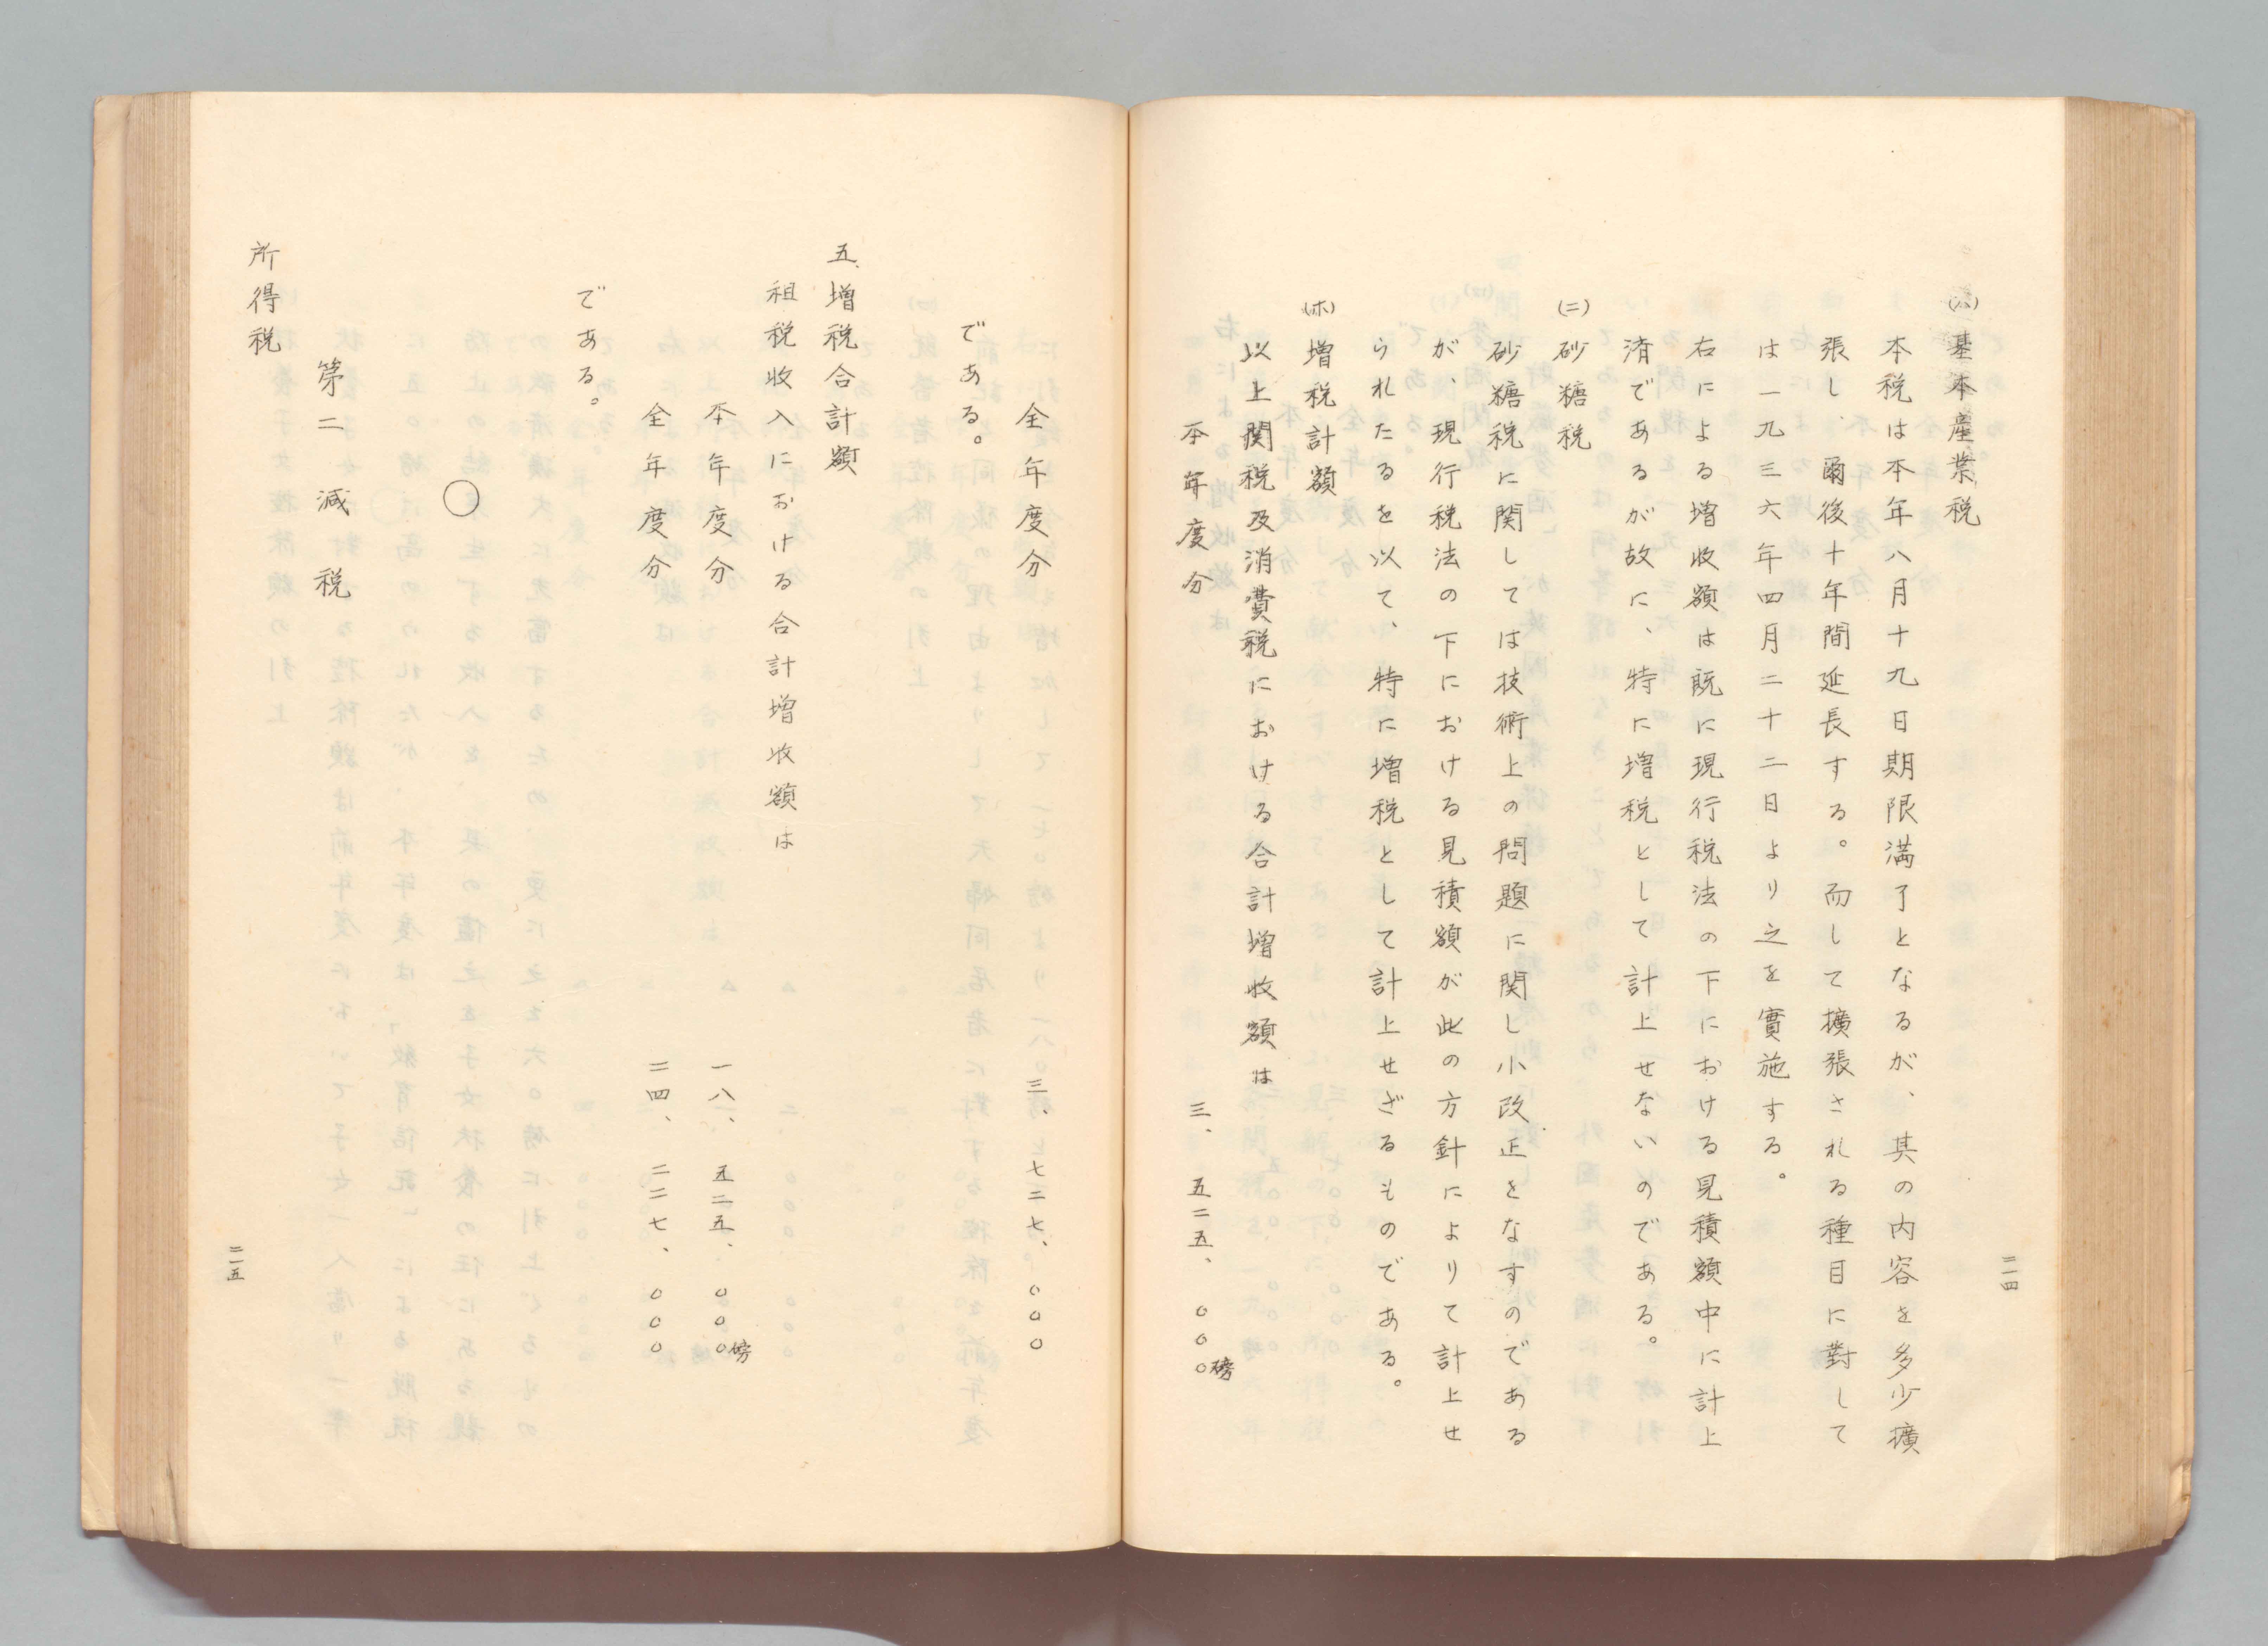 二四
(ハ)基本産業税
本税は本年八月十九日期限満了となるが、其の内容を多少擴
張し、爾後十年間延長する。而して擴張される種目に對して
は一九三六年四月二十二日より之を實施する。
右による増收額は既に現行税法の下における見積額中に計上
済であるが故に、特に増税として計上せないのである。
(ニ)砂糖税
砂糖税に関しては技術上の問題に関し小改正をなすのである
が、現行税法の下における見積額が此の方針によりて計上せ
られたるを以て、特に増税として計上せざるものである。
(ホ)増税計額
以上関税及消費税における合計増收額は
本年度分 三、五二五、〇〇〇磅
全年度分 三、七二七、〇〇〇
である。
五、増税合計額
租税收入における合計増收額は
本年度分 一八、五二五、〇〇〇磅
全年度分 二四、二二七、〇〇〇
である。
〇
第二 減税
所得税
二五